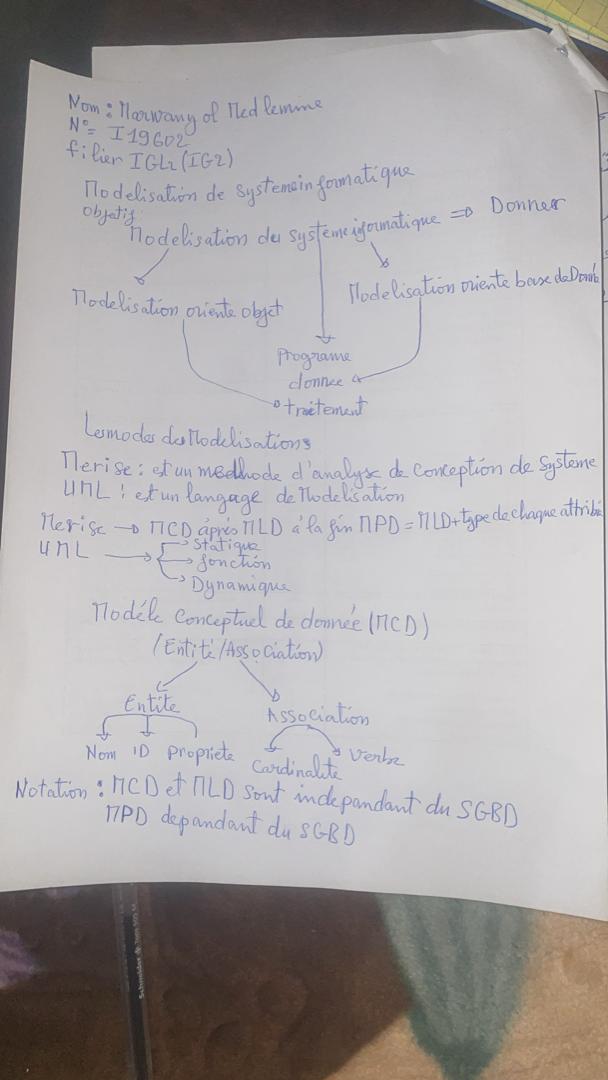 Nom : Marwany of Medlemine
N°= I19602
filier IGL2 (IG2)
Modelisation de systemeinformatique
Objetif
Modelisation des systemeinformatique => Donner
Modelisation oriente objet
Modelisation oriente base de Donné
Programe
donnee
traitement
Lesmodes desModelisations
Merise : est un medhode d'analyse de Conception de Systeme
UML : est un langage de Modelisation
Merise → MCD áprés MLD á la fin MPD = MLD + type de chaque attribi
UML → Statique
fonction
Dynamique
Modéle Conceptuel de donnée (MCD)
(Entité/Association)
Entite
Association
Nom ID propriete
Cardinalite Verbe
Notation : MCD et MLD sont indepandant du SGBD
MPD depandant du SGBD